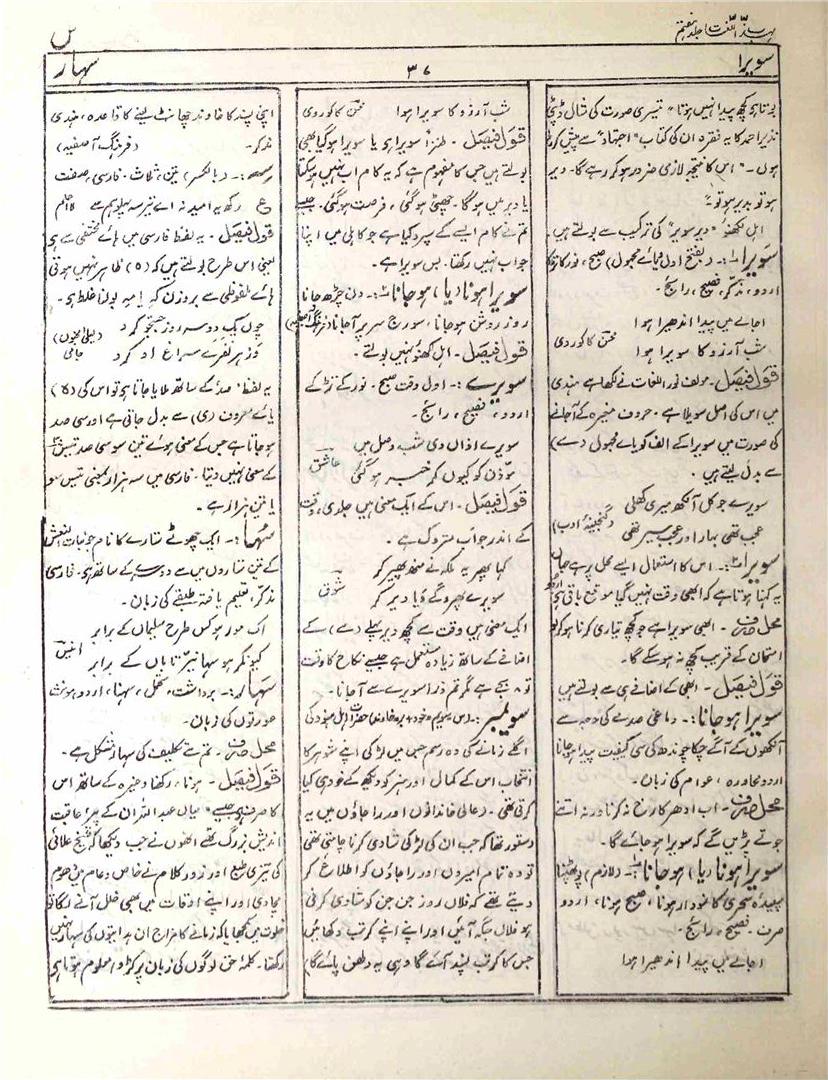 مہذب اللغات جلد ہفتم
س
سویرا
۳۷
سہار
ہوتا ہی کچھ پیدا نہیں ہوتا" تیسری صورت کی مثال ڈپٹی
نذیر احمد کا یہ فقرہ ان کی کتاب "اجتہاد" سے پیش کرتا
ہوں۔ "اس کا نتیجہ لازمی ضرور ہو کر رہے گا۔ دیر
ہو تو بدیر ہو تو"۔
اہل لکھنؤ "دیر سویر" کی ترکیب سے بولتے ہیں۔
سویرا :۔ (بفتح اول و یائے مجہول) صبح، نور کا تڑکا
اردو، مذکر، فصیح، رائج۔
اجالے میں پیدا اندھیرا ہوا
شب آرزو کا سویرا ہوا محسن کاکوروی
قول فیصل۔ مولف نور اللغات نے لکھا ہے ہندی
میں اس کی اصل سویلا ہے۔ حروف مغیرہ کے آجانے
کی صورت میں سویرا کے الف کو یائے مجہول (ے)
سے بدل لیتے ہیں۔
سویرے جو کل آنکھ میری کھلی
عجب تھی بہار اور عجب سیر تھی (گنجینۂ ادب)
سویرا :۔ اس کا استعمال ایسے محل پر ہے جہاں
یہ کہنا ہوتا ہے کہ ابھی وقت نہیں گیا موقع باقی ہے اردو
محل صرف۔ ابھی سویرا ہے جو کچھ تیاری کرنا ہو کر لو
امتحان کے قریب کچھ نہ ہو سکے گا۔
قول فیصل۔ ابھی کے اضافے ہی سے بولتے ہیں
سویرا ہو جانا :۔ دماغی صدمے کی وجہ سے
آنکھوں کے آگے چکا چوندھ کی سی کیفیت پیدا ہو جانا
اردو محاورہ، عوام کی زبان۔
محل صرف۔ اب ادھر کا رخ نہ کرنا ورنہ اتنے
جوتے پڑیں گے کہ سویرا ہو جائے گا۔
سویرا ہونا (یا) ہو جانا :۔ (لازم) پو پھٹنا
سپیدۂ سحری کا نمودار ہونا، صبح ہونا، اردو
صرف۔ فصیح، رائج۔
اجالے میں پیدا اندھیرا ہوا
شب آرزو کا سویرا ہوا محسن کاکوروی
قول فیصل۔ طنزاً سویرا ہی یا سویرا ہو گیا بھی
بولتے ہیں جس کا مفہوم ہے کہ یہ کام اب نہیں ہو سکتا
یا دیر میں ہوگا۔ چھٹی ہو گئی، فرصت ہو گئی۔ جیسے
تم نے کام ایسے کے سپرد کیا ہے جو کاہلی میں اپنا
جواب نہیں رکھتا۔ بس سویرا ہے۔
سویرا ہونا (یا) ہو جانا :۔ دن چڑھ جانا
روز روشن ہو جانا، سورج سر پر آ جانا (فرہنگ آصفیہ)
قول فیصل۔ اہل لکھنؤ نہیں بولتے۔
سویرے :۔ اول وقت صبح۔ نور کے تڑکے
اردو، فصیح، رائج۔
سویرے اذاں دی شب وصل میں
موذن کو کیوں کر خبر ہو گئی عاشق
قول فیصل۔ اس کے ایک معنی ہیں جلدی، وقت
کے اندر جو اب متروک ہے۔
کہا پھر یہ ملکہ نے منھ پھیر کر
سویرے پھرو گے ویا دیر کر شوق
ایک معنی ہیں وقت سے کچھ دیر پہلے (سے) کے
اضافے کے ساتھ زیادہ مستعمل ہے جیسے نکاح کا وقت
تو ۸ بجے ہے مگر تم ذرا سویرے سے آ جانا۔
سویمبر :۔ حضرات اہل ہنود کی
اگلے زمانے کی وہ رسم جس میں لڑکی اپنے شوہر کا
انتخاب اس کے کمال اور ہنر کو دیکھ کے خود ہی کیا
کرتی تھی۔ (عالی خاندانوں اور راجاؤں میں یہ
دستور تھا کہ جب ان کی لڑکی شادی کرنا چاہتی تھی
تو وہ تمام امیروں اور راجاؤں کو اطلاع کر
دیتے تھے کہ فلاں روز جن جن کو شادی کرنی
ہو فلاں جگہ آئیں اور اپنے اپنے کرتب دکھائیں
جس کا کرتب پسند آئے گا وہی یہ دلھن پائے گا)
اپنی پسند کا خاوند چھانٹ لینے کا قاعدہ، ہندی
مذکر۔ (فرہنگ آصفیہ)
سہ :۔ (بالکسر) تین، ثلاث۔ فارسی، صفت
ع رکھ یہ امید نہ اے تیر سہ پہلو ہم سے
قول فیصل۔ یہ لفظ فارسی میں ہائے مختفی سے ہے
یعنی اس طرح بولتے ہیں کہ (ہ) ظاہر نہیں ہوتی
ہائے ملفوظی سے بروزن کہ یا مہ بولنا غلط ہے۔
چوں یک دو سہ روز جستجو کرد
وز ہر نفرے سراغ او کرد (لیلیٰ مجنوں) جامی
یہ لفظ "صد" کے ساتھ ملایا جاتا ہے تو اس کی (ہ)
یائے معروف (ی) سے بدل جاتی ہے اور سی صد
ہو جاتا ہے جس کے معنی ہوئے تین سو سی صد تیس سو
کے معنی نہیں دیتا۔ فارسی میں سہ ہزار بمعنی تیس سو
یا تین ہزار ہے۔
سُہا :۔ ایک چھوٹے ستارے کا نام جو بنات النعش
کے تین ستاروں میں سے دوسرے کے ساتھ ہے۔ فارسی
مذکر، تعلیم یافتہ طبقے کی زبان۔
اک مور ہو کس طرح سلیماں کے برابر
کیونکر ہو سہا نیر تاباں کے برابر انیس
سہار :۔ برداشت، تحمل، سہنا، اردو مونث
عورتوں کی زبان۔
محل صرف۔ غم سے تکلیف کی سہار مشکل ہے۔
قول فیصل۔ ہونا، رکھنا وغیرہ کے ساتھ اس
کا صرف ہے جیسے "میاں عبد اللہ ان کے پیر عاقبت
اندیش بزرگ تھے انھوں نے جب دیکھا کہ شیخ علائی
کی تیزی طبع اور زور کلام نے خاص و عام میں دھوم
مچا دی اور اپنے اوقات میں بھی خلل آنے لگا تو
خلوت میں سمجھایا کہ زمانے کا مزاج ان ہدایتوں کی سہار نہیں
رکھتا۔ کلمۂ حق لوگوں کی زبان پر کڑوا معلوم ہوتا ہے